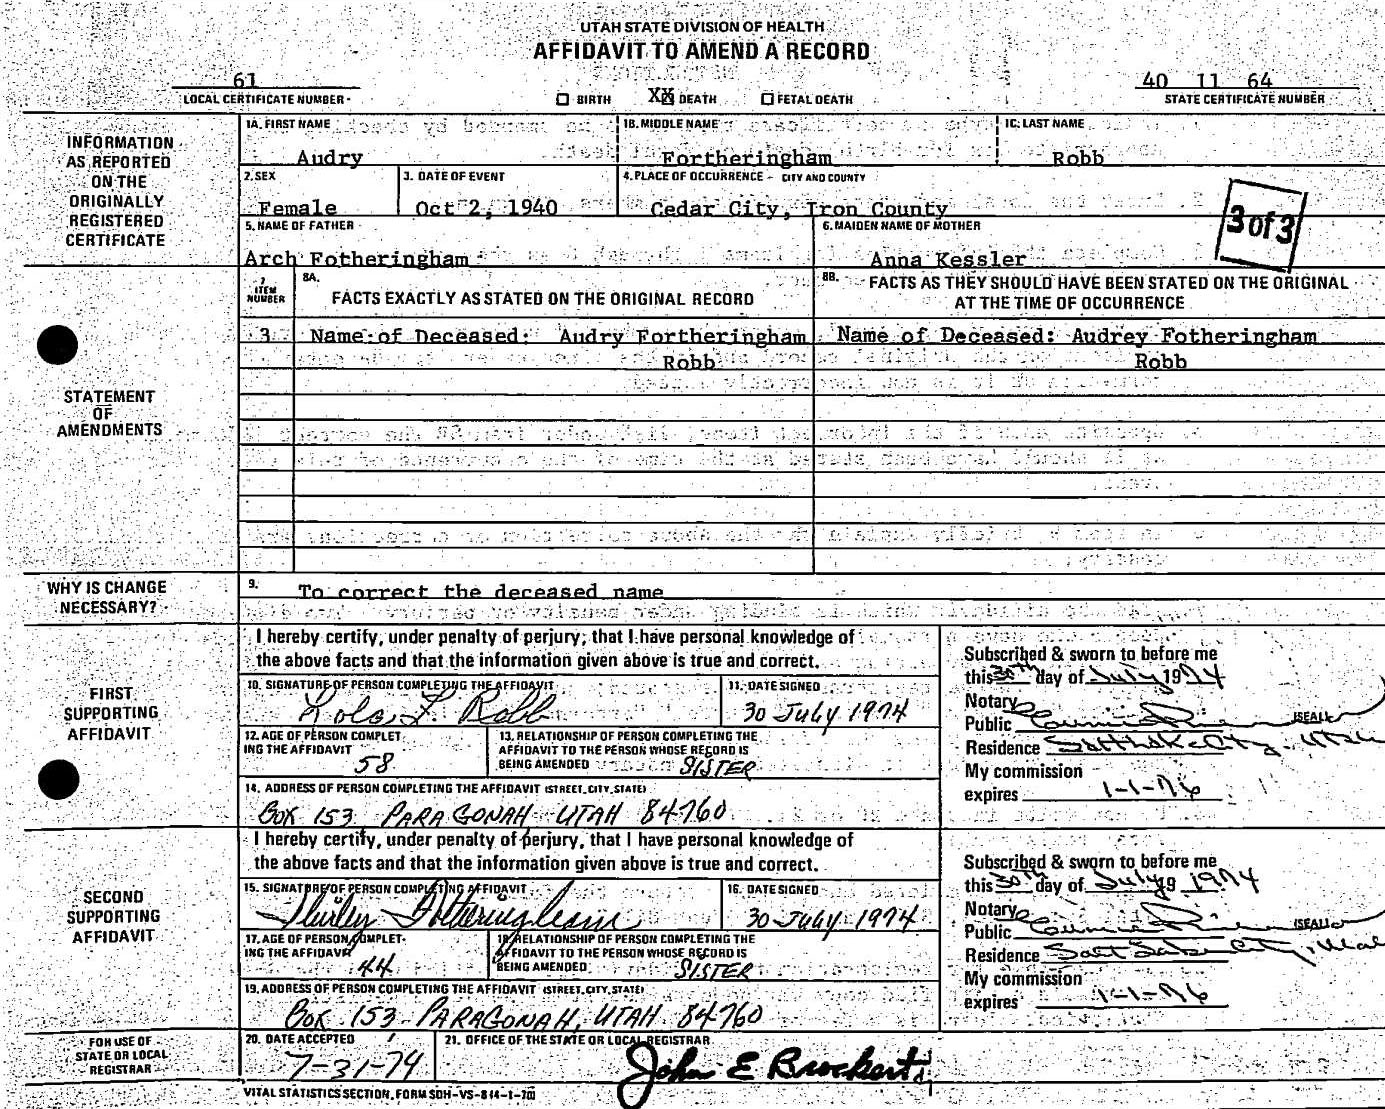 UTAH STATE DIVISION OF HEALTH
AFFIDAVIT TO AMEND A RECORD
61
LOCAL CERTIFICATE NUMBER
BIRTH XX DEATH FETAL DEATH
40 11 64
STATE CERTIFICATE NUMBER
INFORMATION
AS REPORTED
ON THE
ORIGINALLY
REGISTERED
CERTIFICATE
1A. FIRST NAME
Audry
1B. MIDDLE NAME
Fortheringham
1C. LAST NAME
Robb
2. SEX
Female
3. DATE OF EVENT
Oct 2, 1940
4. PLACE OF OCCURRENCE - CITY AND COUNTY
Cedar City, Iron County
3 of 3
5. NAME OF FATHER
Arch Fotheringham
6. MAIDEN NAME OF MOTHER
Anna Kessler
STATEMENT
OF
AMENDMENTS
7
ITEM
NUMBER
8A.
FACTS EXACTLY AS STATED ON THE ORIGINAL RECORD
8B.
FACTS AS THEY SHOULD HAVE BEEN STATED ON THE ORIGINAL
AT THE TIME OF OCCURRENCE
3 Name of Deceased: Audry Fortheringham
Robb
Name of Deceased: Audrey Fotheringham
Robb
WHY IS CHANGE
NECESSARY?
9.
To correct the deceased name
FIRST
SUPPORTING
AFFIDAVIT
I hereby certify, under penalty of perjury, that I have personal knowledge of
the above facts and that the information given above is true and correct.
10. SIGNATURE OF PERSON COMPLETING THE AFFIDAVIT
Lola F. Robb
11. DATE SIGNED
30 JULY 1974
12. AGE OF PERSON COMPLET
ING THE AFFIDAVIT
58
13. RELATIONSHIP OF PERSON COMPLETING THE
AFFIDAVIT TO THE PERSON WHOSE RECORD IS
BEING AMENDED
SISTER
14. ADDRESS OF PERSON COMPLETING THE AFFIDAVIT (STREET, CITY, STATE)
BOX 153 PARAGONAH UTAH 84760
Subscribed & sworn to before me
this 30th day of July 1974
Notary
Public
(SEAL)
Residence Salt Lake City, Utah
My commission
expires 1-1-76
SECOND
SUPPORTING
AFFIDAVIT
I hereby certify, under penalty of perjury, that I have personal knowledge of
the above facts and that the information given above is true and correct.
15. SIGNATURE OF PERSON COMPLETING AFFIDAVIT
Shirley Fotheringham
16. DATE SIGNED
30 JULY 1974
17. AGE OF PERSON COMPLET-
ING THE AFFIDAVIT
44
18. RELATIONSHIP OF PERSON COMPLETING THE
AFFIDAVIT TO THE PERSON WHOSE RECORD IS
BEING AMENDED
SISTER
19. ADDRESS OF PERSON COMPLETING THE AFFIDAVIT (STREET, CITY, STATE)
BOX 153 PARAGONAH, UTAH 84760
Subscribed & sworn to before me
this 30th day of July 19 1974
Notary
Public
(SEAL)
Residence Salt Lake City, Utah
My commission
expires 1-1-76
FOR USE OF
STATE OR LOCAL
REGISTRAR
20. DATE ACCEPTED
7-31-74
21. OFFICE OF THE STATE OR LOCAL REGISTRAR
John E Brockert
VITAL STATISTICS SECTION, FORM SDH-VS-